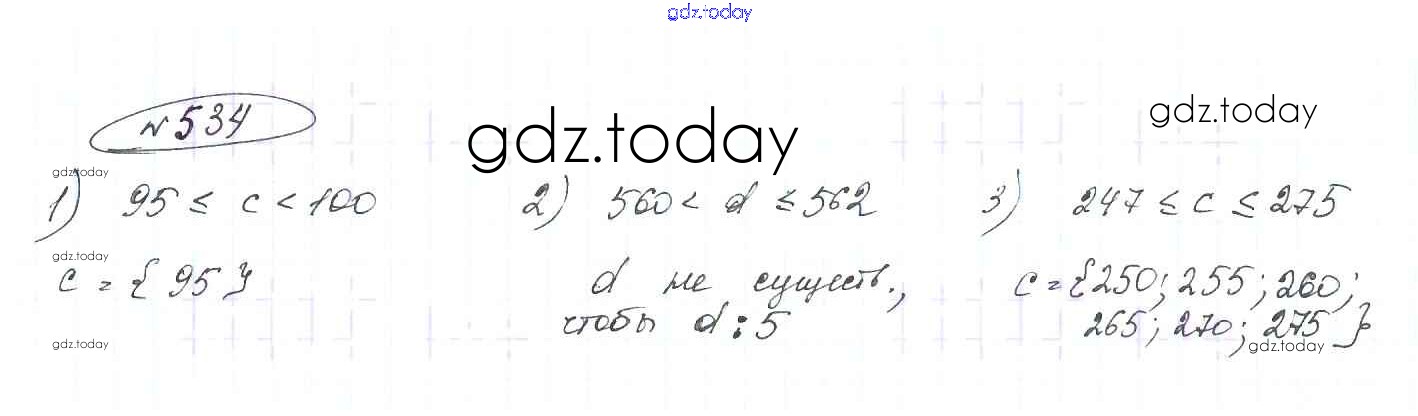 gdz.today
№ 534
gdz.today
gdz.today
gdz.today
1) 95 ≤ c < 100
2) 560 < d ≤ 562
3) 247 ≤ c ≤ 275
gdz.today
c = { 95 }
d не существ.,
чтобы d ⋮ 5
c = {250; 255; 260;
265; 270; 275 }
gdz.today
gdz.today